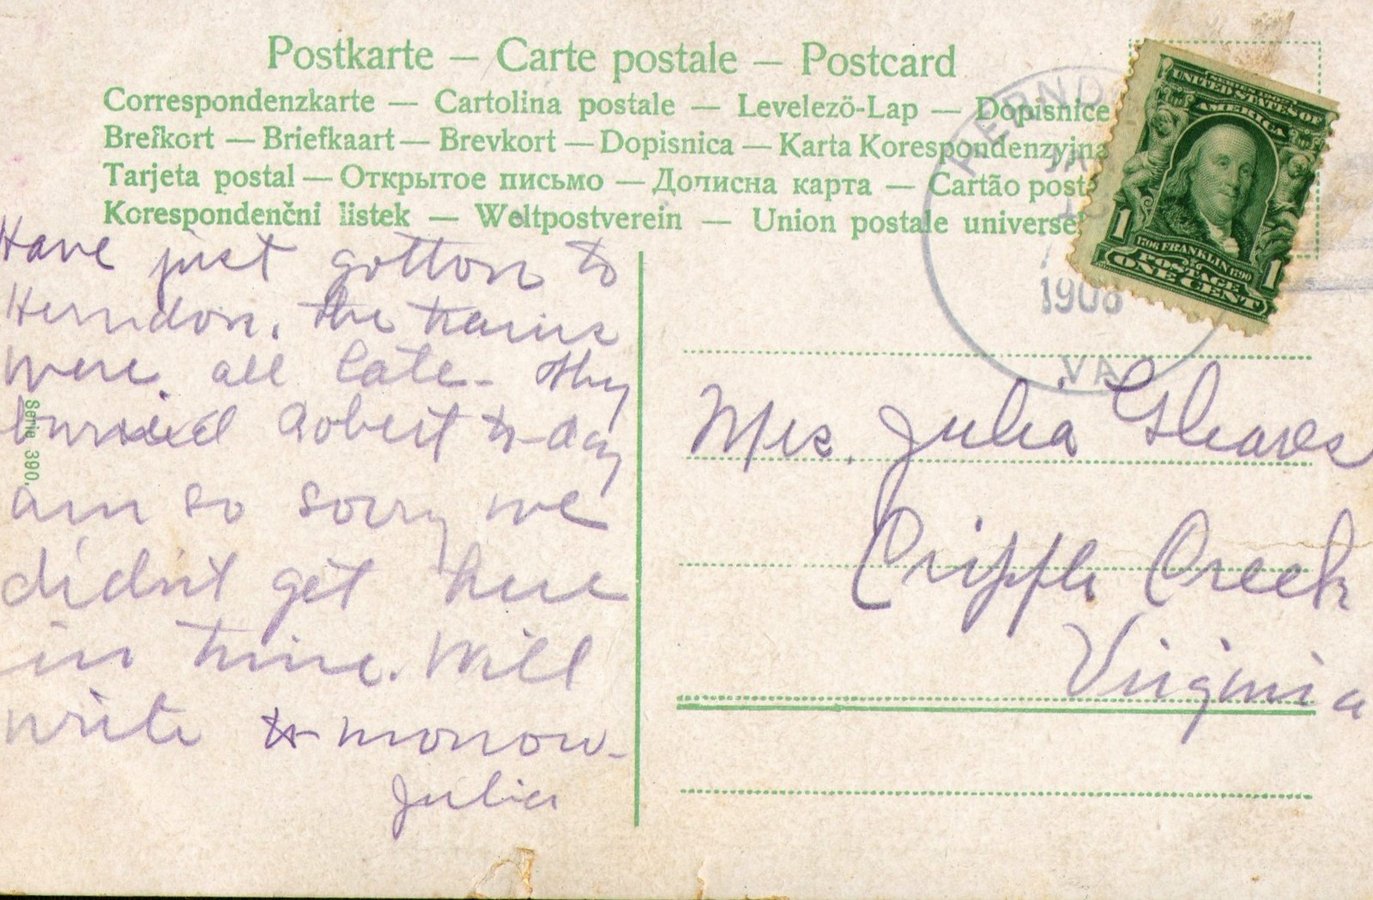 Postkarte — Carte postale — Postcard
Correspondenzkarte — Cartolina postale — Levelező-Lap — Dopisnice
Brefkort — Briefkaart — Brevkort — Dopisnica — Karta Korespondenzyjna
Tarjeta postal — Открытое письмо — Дописна карта — Cartão posta
Korespondenční listek — Weltpostverein — Union postale universel
HERND
JA
1908
VA
UNITED STATES OF
AMERICA
1706 FRANKLIN 1790
POSTAGE
1 ONE CENT 1
Have just gotton to
Herndon. The trains
were all late - they
burried Robert to-day
am so sorry we
didn't get here
in time. Will
write to-morrow-
Julia
Serie 390.
Mrs. Julia Gleaves
Cripple Creek
Virginia